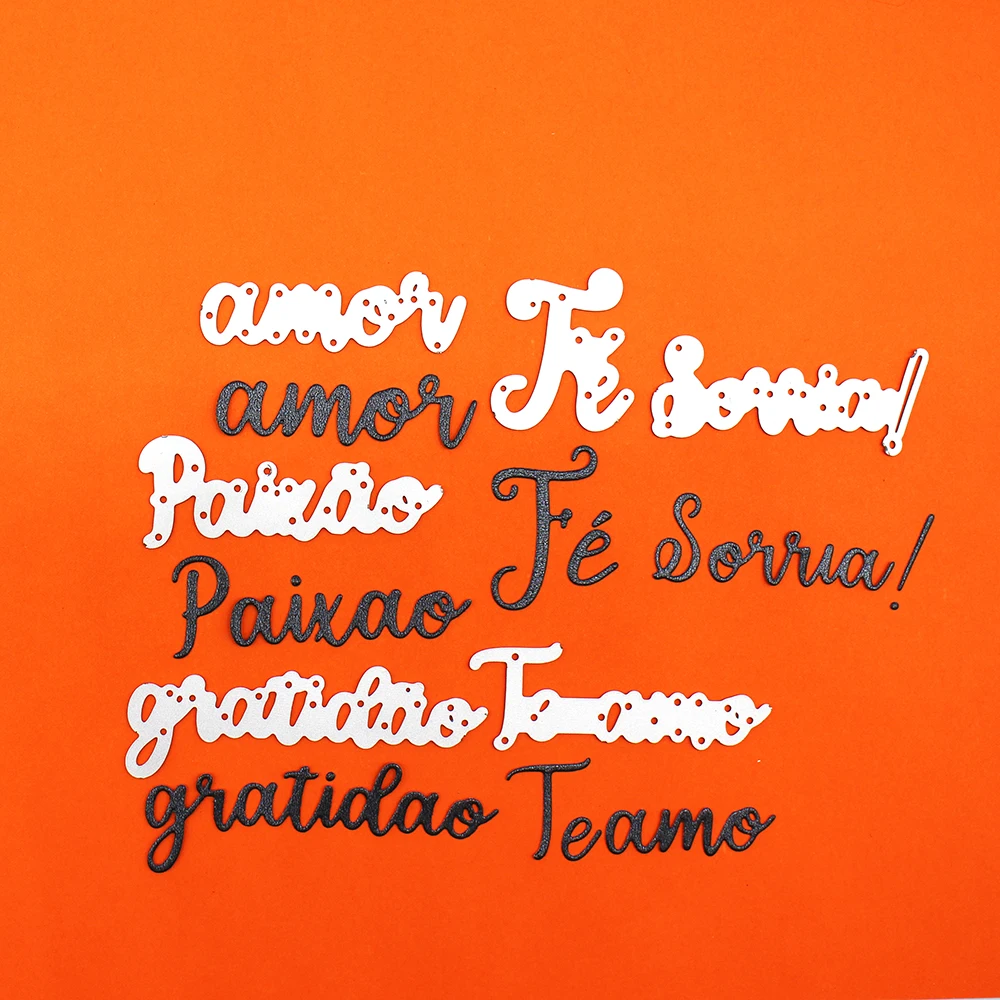 amor
Fé
Sorria!
amor
Paixão
Fé
Sorria!
Paixao
gratidão
Te amo
gratidao
Teamo